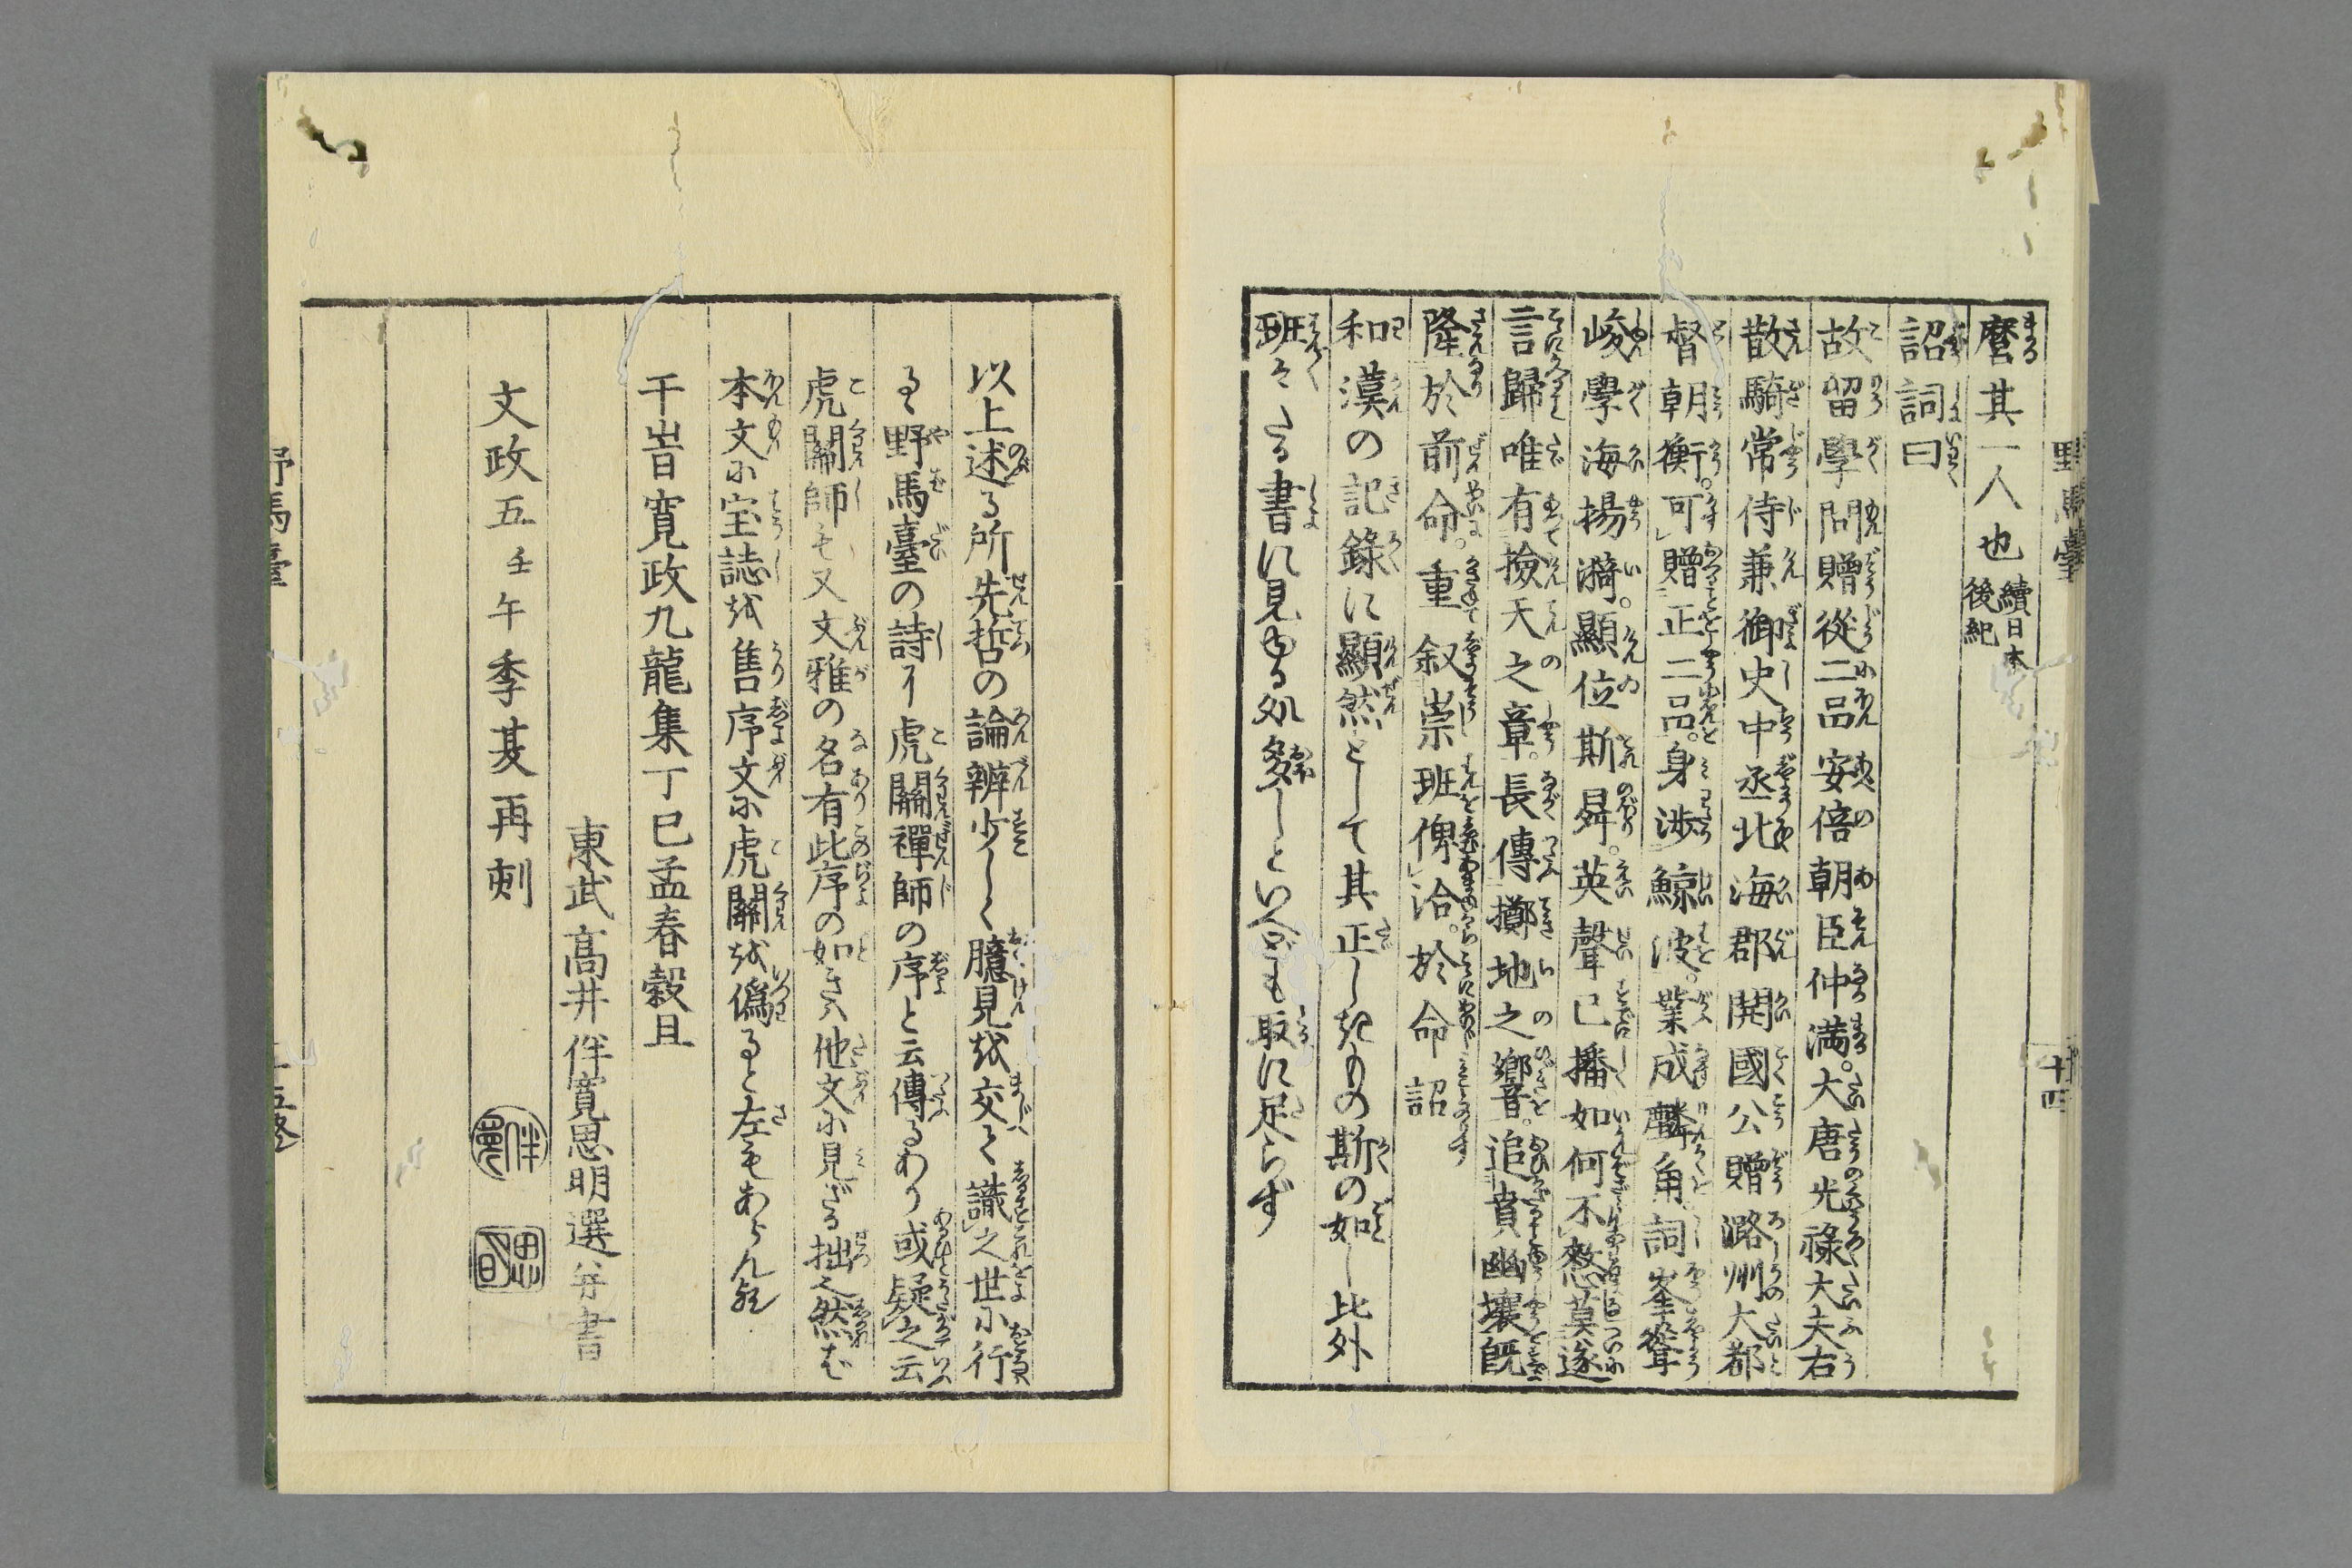 野馬臺
十四
麿其一人也 續日本後紀
詔詞曰
故留學問贈從二品安倍朝臣仲満。大唐光祿大夫右
散騎常侍兼御史中丞北海郡開國公贈潞州大都
督朝衡。可贈正二品。身渉鯨波。業成麟角詞峯聳
峻學海揚漪。顯位斯昇。英聲已播如何不憗莫遂
言歸唯有撿天之章。長傳擲地之響。追賁幽壤既
隆於前命。重叙崇班俾洽。於命詔
和漢の記錄に顯然として其正しきもの斯の如し此外
班々たる書に見ゆる処多しといへども取に足らず
以上述る所先哲の論辨少しく臆見を交て識之世に行
るゝ野馬臺の詩に虎關禪師の序と云傳るあり或疑之云
虎關師も又文雅の名有此序の如きハ他文に見ざる拙之然ば
本文に宝誌を售序文に虎關を僞ると左もあらん歟
干旹寛政九龍集丁巳孟春穀旦
東武高井伴寛思明選并書
文政五壬午季夏再刻
伴寛
思明
野馬臺
十五終